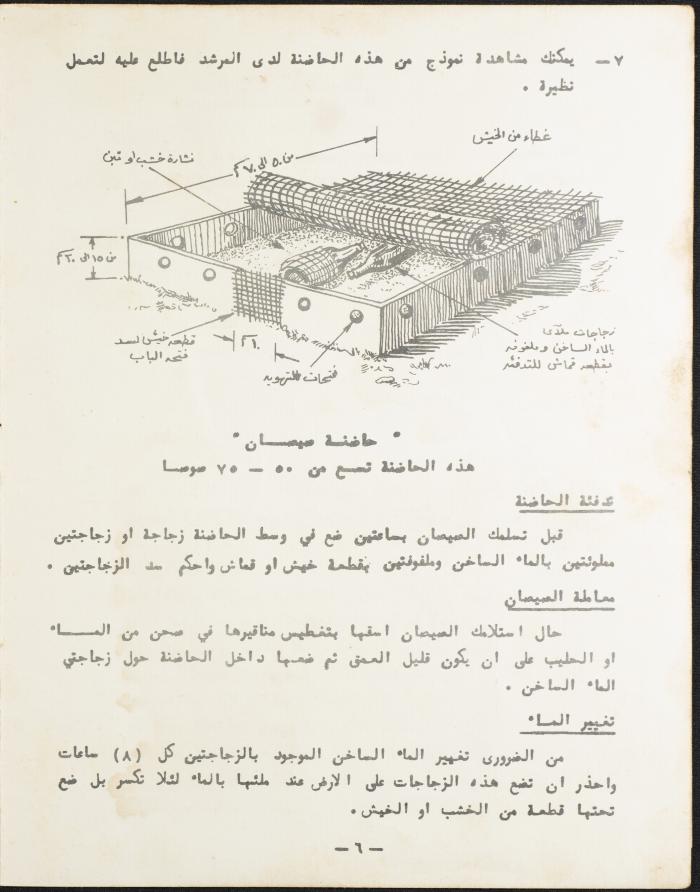 ٧ – يمكنك مشاهدة نموذج من هذه الحاضنة لدى المرشد فاطلع عليه لتعمل
نظيرة .
غطاء من الخيش
نشارة خشب او تبن
من ٥٠ الى ٧٠ سم
من ١٥ الى ٢٠ سم
قطعه خيش لسد
فتحه الباب
١٠ سم
فتحات للتهويه
زجاجات ملآى
بالماء الساخن وملفوفه
بقطعه قماش للتدفئه
" حاضنة صيصــان "
هذه الحاضنة تسع من ٥٠ – ٧٥ صوصا
تدفئة الحاضنة
قبل تسلمك الصيصان بساعتين ضع في وسط الحاضنة زجاجة او زجاجتين
مملوئتين بالماء الساخن وملفوفتين بقطعة خيش او قماش واحكم سد الزجاجتين .
معاملة الصيصان
حال استلامك الصيصان اسقها بتغطيس مناقيرها في صحن من المــــاء
او الحليب على ان يكون قليل العمق ثم ضعها داخل الحاضنة حول زجاجتي
الماء الساخن .
تغيير المــاء
من الضرورى تغيير الماء الساخن الموجود بالزجاجتين كل (٨) ساعات
واحذر ان تضع هذه الزجاجات على الارض عند ملئها بالماء لئلا تكسر بل ضع
تحتها قطعة من الخشب او الخيش .
– ٦ –